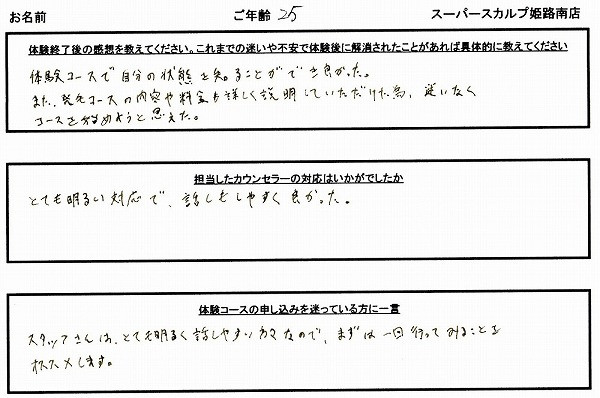 お名前 ご年齢 25 スーパースカルプ姫路南店
体験終了後の感想を教えてください。これまでの迷いや不安で体験後に解消されたことがあれば具体的に教えてください
体験コースで自分の状態を知ることができ良かった。
また、発毛コースの内容や料金も詳しく説明していただけた為、迷いなく
コースを始めようと思えた。
担当したカウンセラーの対応はいかがでしたか
とても明るい対応で、話しもしやすく良かった。
体験コースの申し込みを迷っている方に一言
スタッフさんは、とても明るく話しやすい方々なので、まずは一回行ってみることを
オススメします。